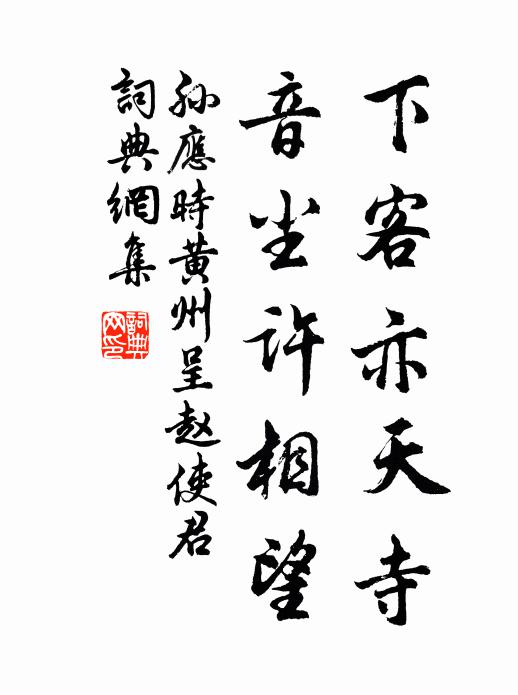 下客亦天寺
音尘许相望
孙應時黄州呈赵使君
詞典網集
詞典网印